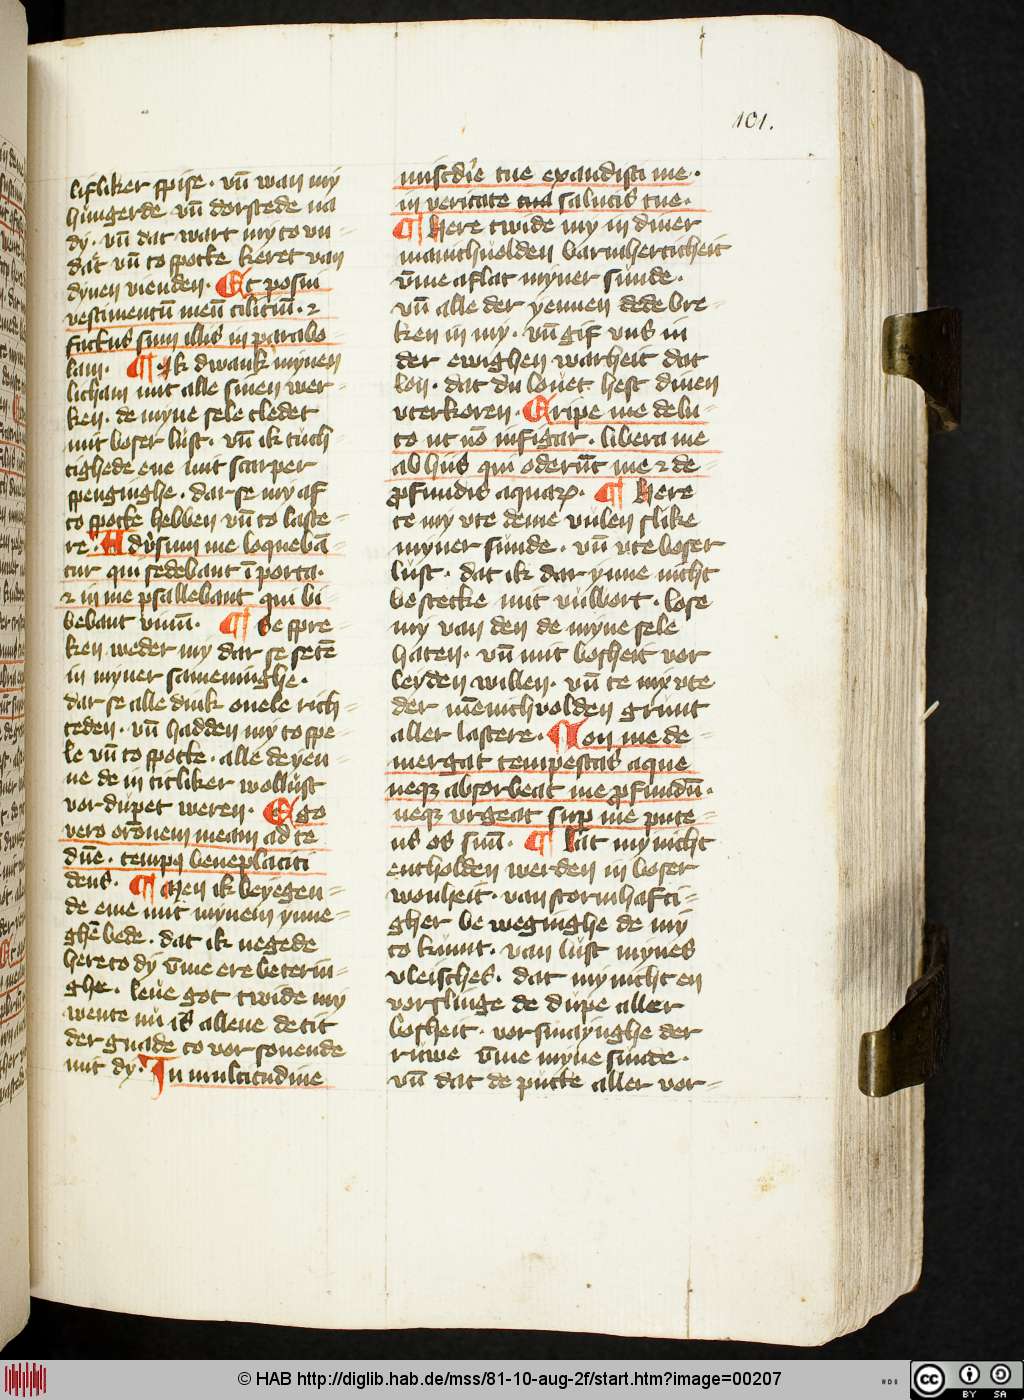 101.
lifliker spise · vn̄ wan my
hungerde vn̄ dorstede na
dy · vn̄ dat wart my to vn=
dat vn̄ to spotte keret van
dynen vienden · Et posui
vestimentū meū ciliciū · ⁊
factus sum illis in parabo
lam · ¶ Ik dwank mynen
licham mit alle sinen wer=
ken · de myne sele cledet
mit boser lust · vn̄ ik tuch=
tighede ene mit scarper
spenginghe · dar se my af
to spotte hebben vn̄ to laste=
re · Adv̄sum me loquebā=
tur qui sedebant ī porta ·
⁊ in me psallebant qui bi=
bebant vinū · ¶ Se spre=
ken weder my dar se setē
in myner sameninghe ·
dar se alle dink ouele rich=
teden · vn̄ hadden my to spe=
le vn̄ to spotte · alle de yen=
ne de in titliker wollust
vordupet weren · Ego
vero orōnem meam ad te
dn̄e · tempꝰ beneplaciti
deus · ¶ Men ik beyegen=
de eme mit mynem ynne=
ghē bede · dat ik negede
here to dy v̄me ere beterin=
ghe · leue got twide my
wente nu is allene de tit
der gnade to vorsonende
mit dy · In multitudine
miscd̄ie tue exaudisti me ·
in veritate tua salutis tue ·
¶ Here twide my in diner
manichuolden barmherticheit
v̄me aflat myner sunde ·
vn̄ alle der yennen dede bre=
ken in my · vn̄ gif vns in
der ewighen warheit dat
lon · dat du louet hest dinen
vterkoren · Eripe me de lu=
to ut nō infigar · libera me
ab hiis qui oderūt me ⁊ de=
ꝓfundis aquaꝝ · ¶ Here
te my vte deme vulen slike
myner sunde · vn̄ vte boser
lust · dat ik dar ynne nicht
bestecke mit vulbort · lose
my van den de myne sele
haten · vn̄ mit bosheit vor
leyden willen · vn̄ te my vte
der mēnichuolden grunt
aller lastere · Non me de=
mergat tempestas aque
neqꝫ absorbeat me ꝓfundū ·
neqꝫ vrgeat suꝑ me pute=
us os suū · ¶ Lat my nicht
entholden werden in boser
wonheit · van stormhafti=
gher beweginghe de my
to kumt · van lust mynes
vleisches · dat my nicht en
vorslinge de dupe aller
bosheit · vorsmaynghe der
ruwe v̄me myne sunde ·
vn̄ dat de putte aller vor=
© HAB http://diglib.hab.de/mss/81-10-aug-2f/start.htm?image=00207
HAB
CC BY SA